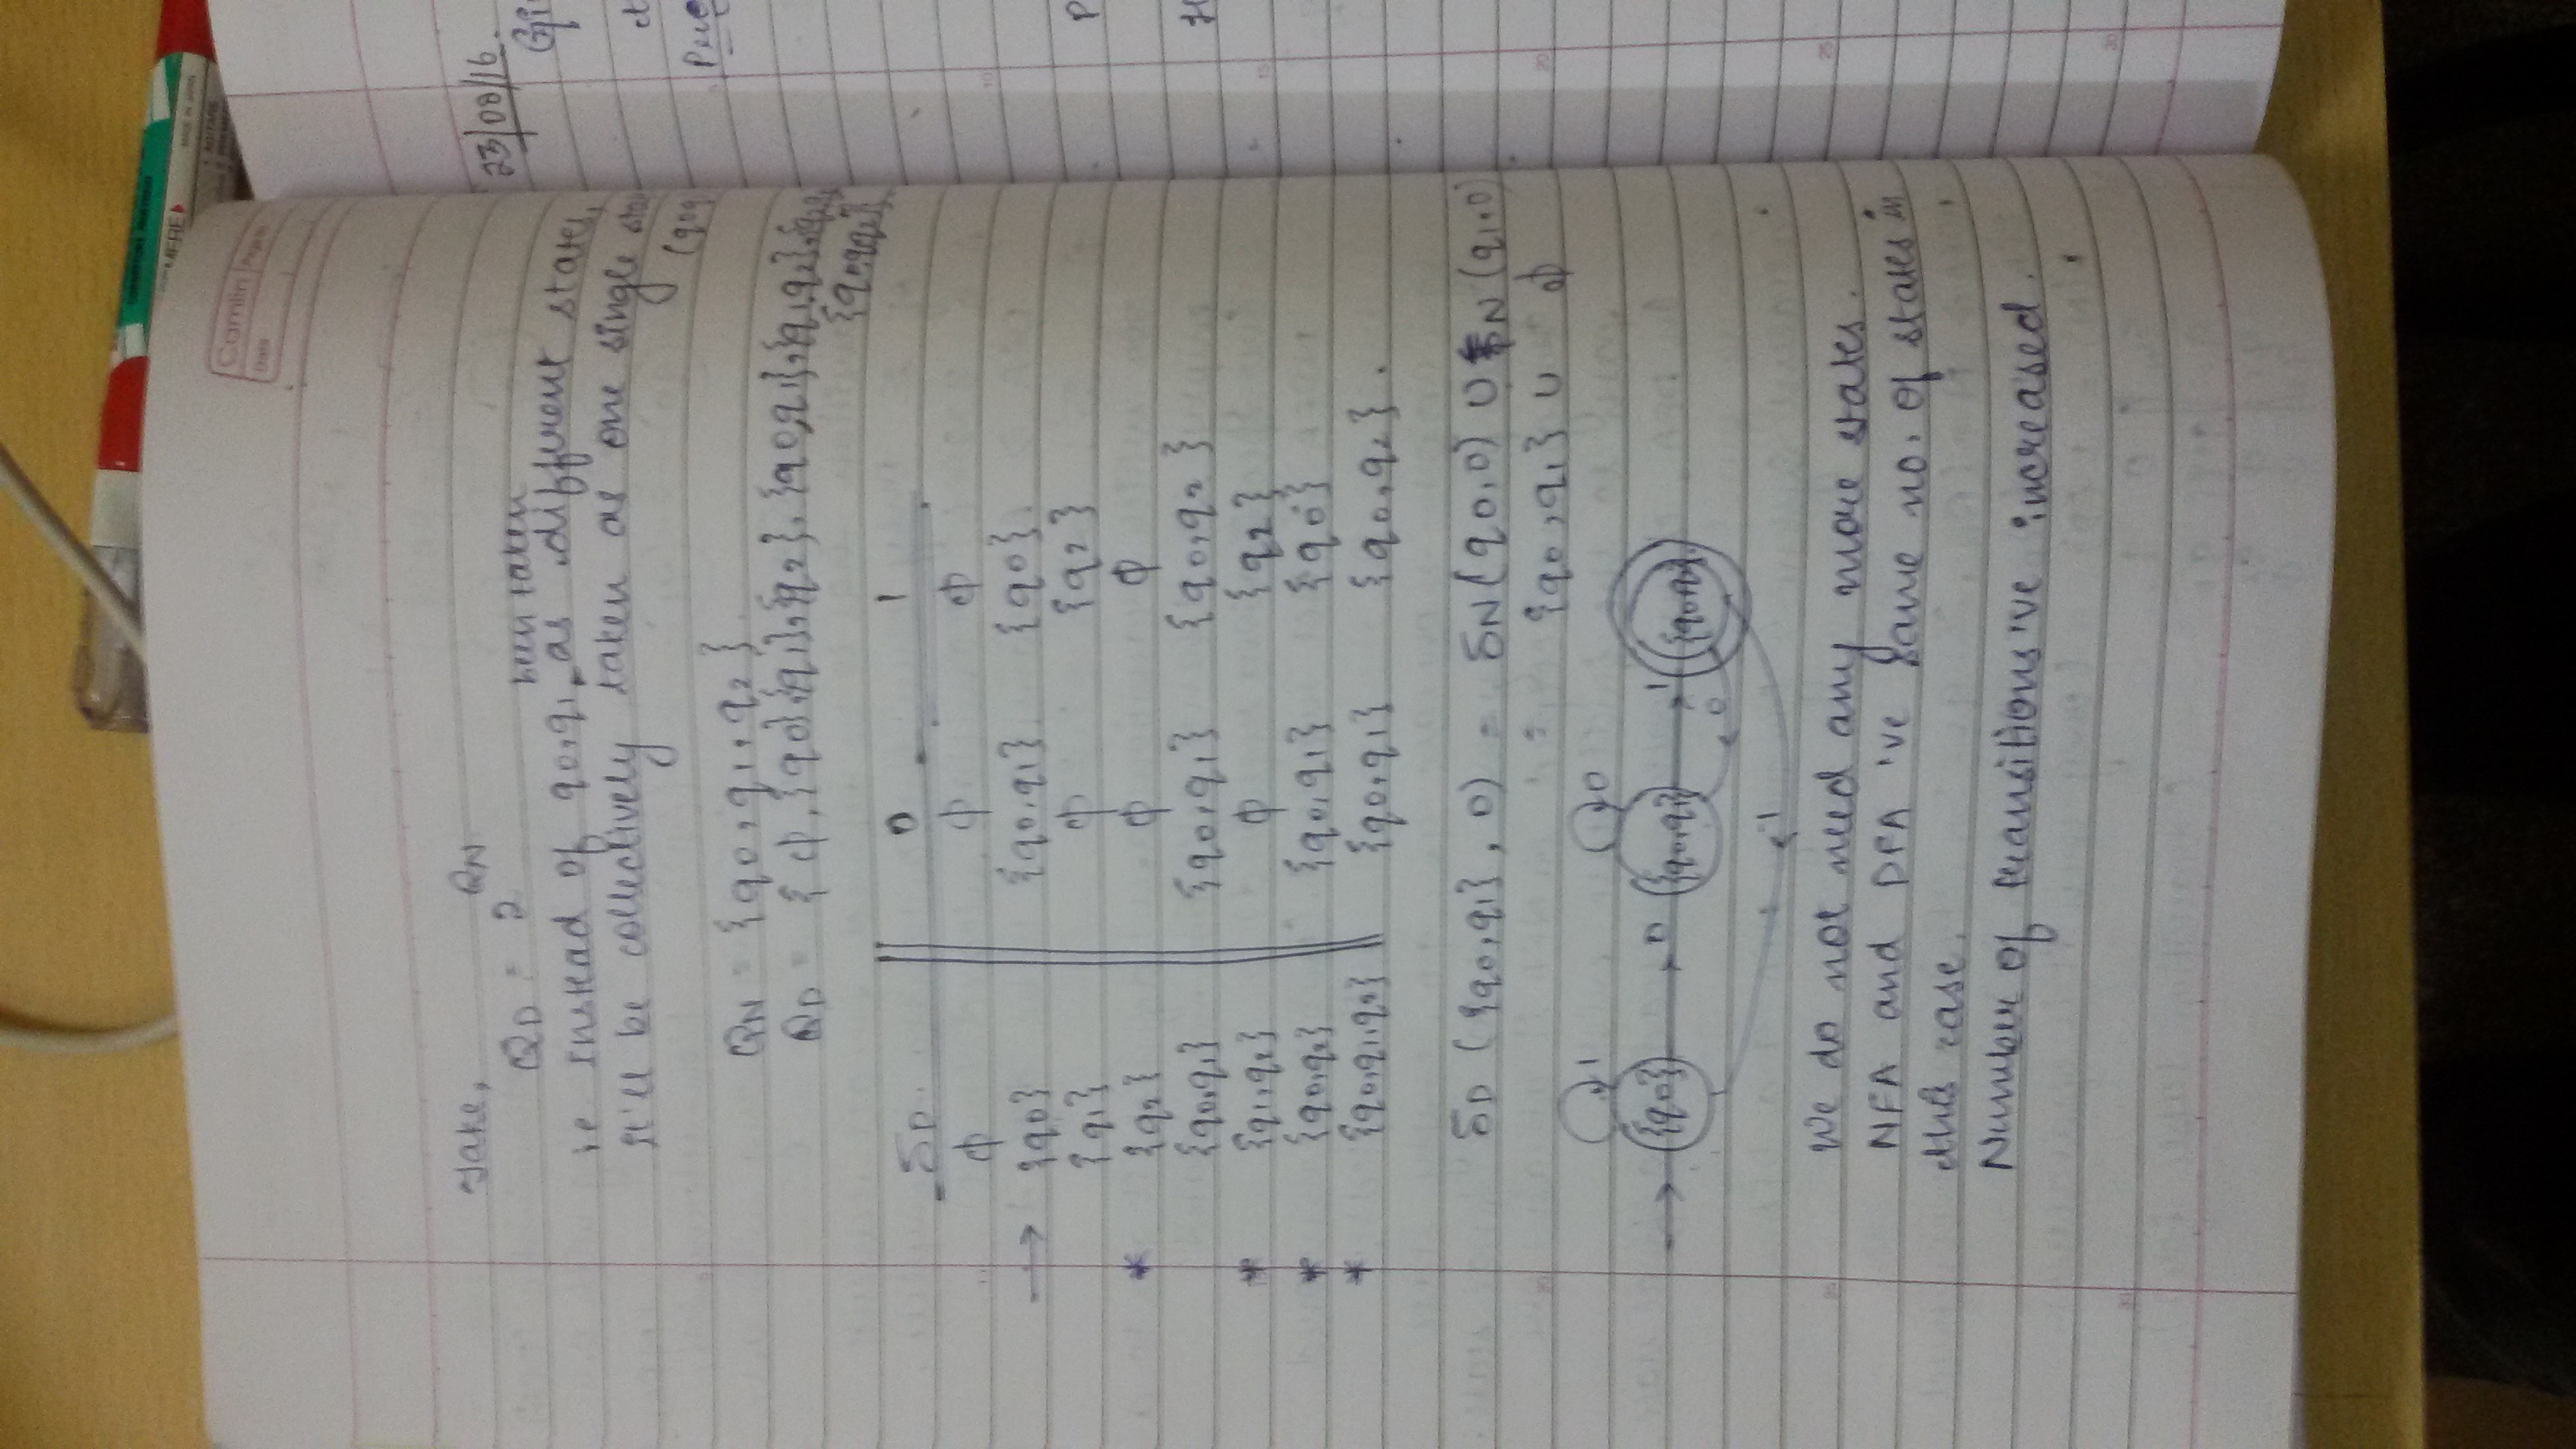 CORRETTORE
MADE IN JAPAN
Camlin Page No.
Date
23/08/16.
Take,
QD = 2^QN
been taken
i.e instead of q0,q1 as different states,
it'll be collectively taken as one single
QN = {q0, q1, q2}.
QD = {ϕ, {q0}, {q1}, {q2}, {q0,q1}, {q1,q2},
{q0,q1,q2}}.
δD 0 1
ϕ ϕ ϕ
→ {q0} {q0,q1} {q0}.
{q1} ϕ {q2}
* {q2} ϕ ϕ
{q0,q1} {q0,q1} {q0,q2}
* {q1,q2} ϕ {q2}
* {q0,q2} {q0,q1} {q0}
* {q0,q1,q2} {q0,q1} {q0,q2}.
δD ({q0,q1}, 0) = δN(q0,0) ∪ δN(q1,0)
= {q0,q1} ∪ ϕ
1 0
{q0} 0 {q0,q1} 1 {q0,q2}
0
1
We do not need any more states.
NFA and DFA 've same no. of states in
this case.
Number of transitions 've increased.